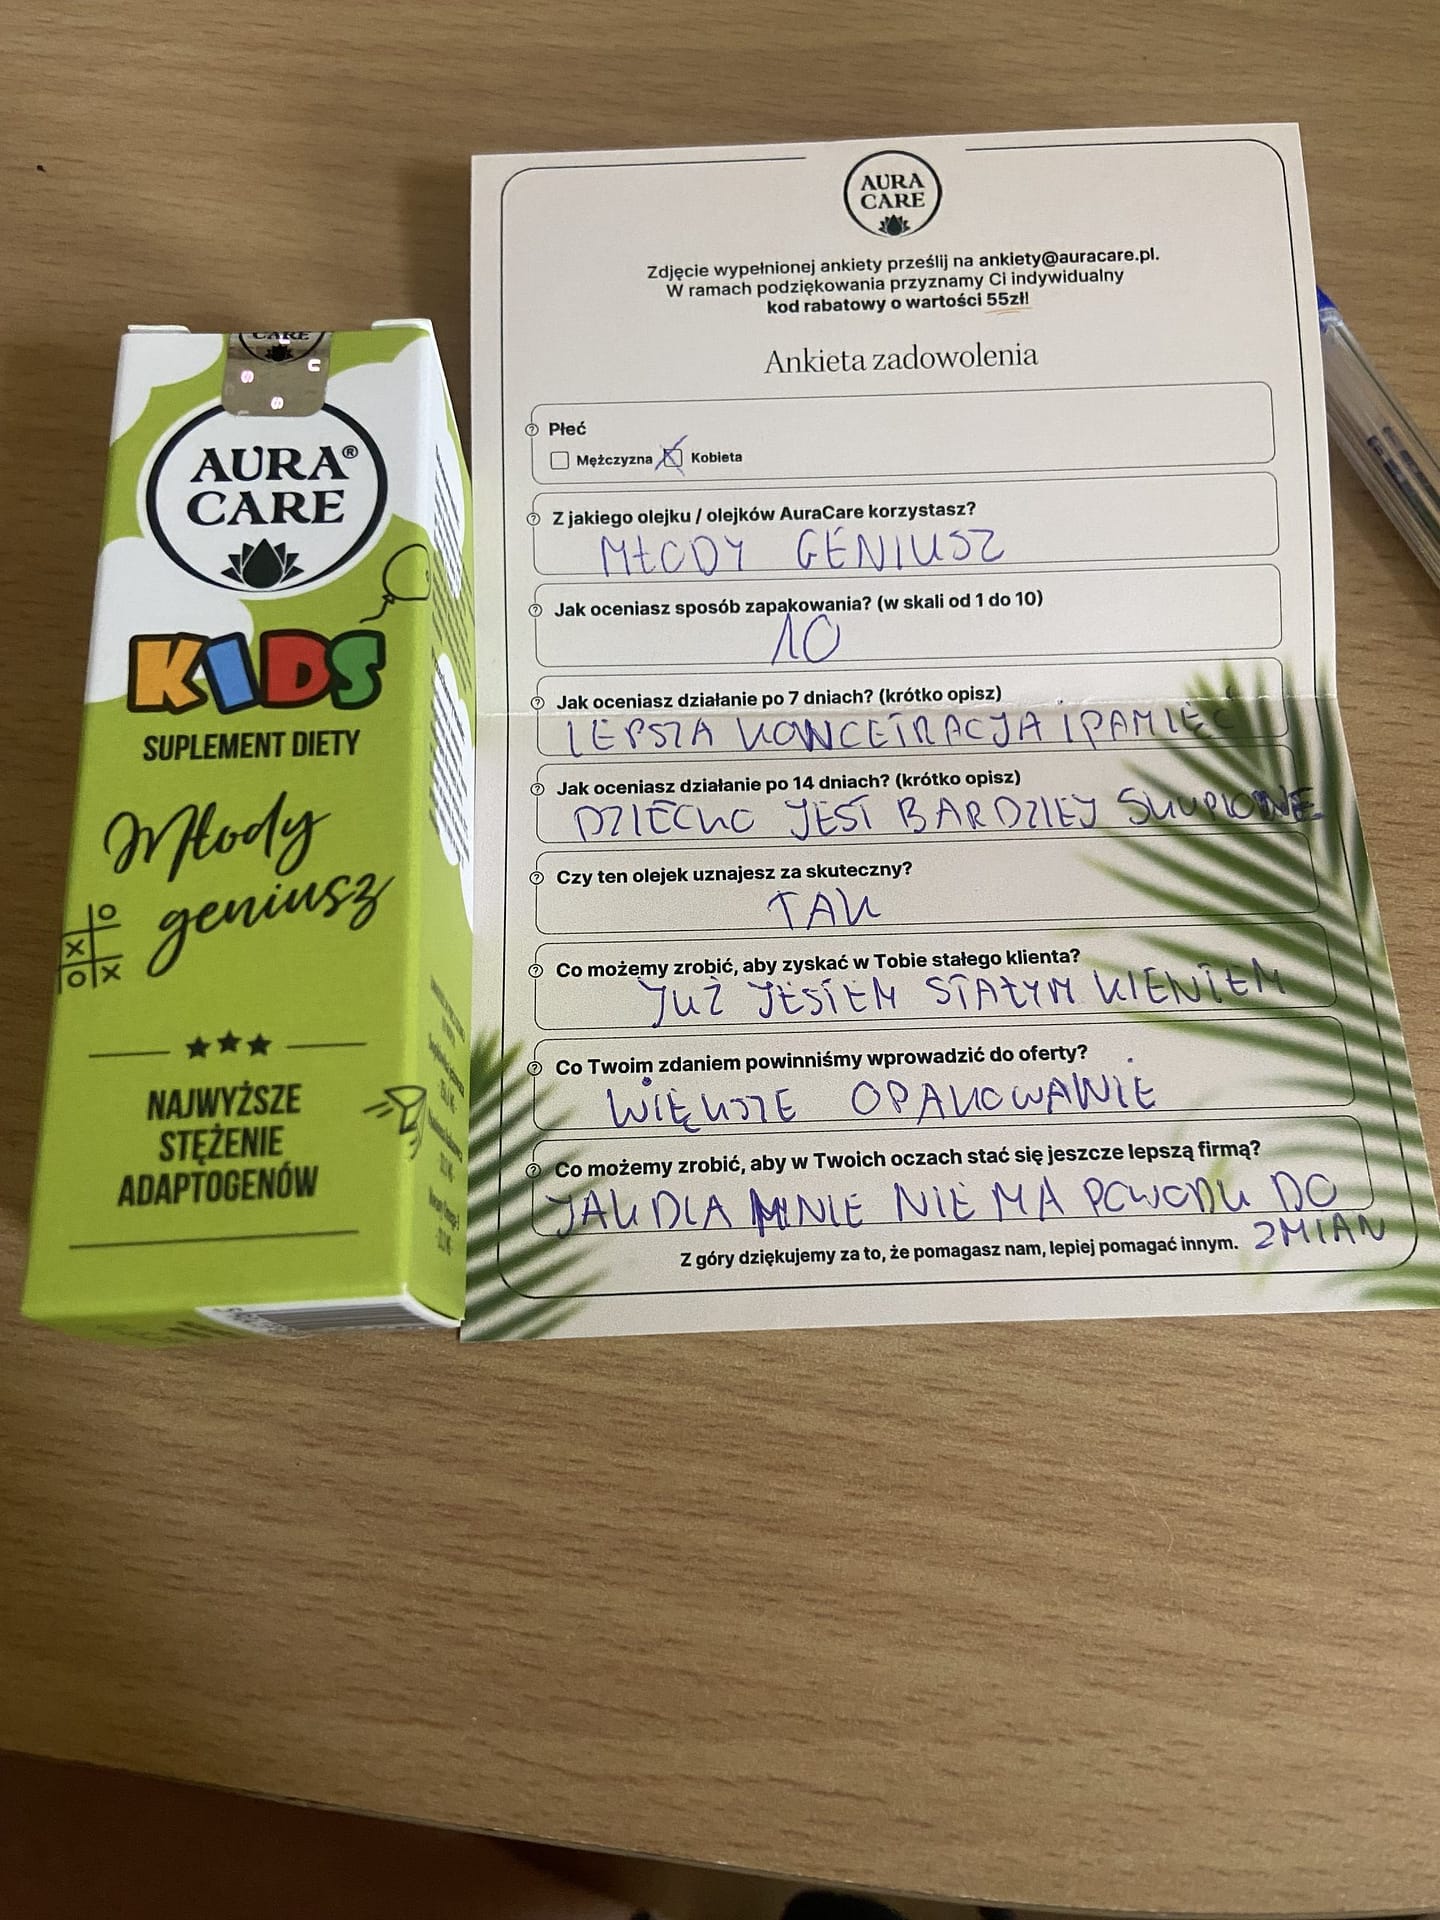 AURA
CARE
Zdjęcie wypełnionej ankiety prześlij na ankiety@auracare.pl.
W ramach podziękowania przyznamy Ci indywidualny
kod rabatowy o wartości 55zł!
Ankieta zadowolenia
Płeć
Mężczyzna Kobieta
Z jakiego olejku / olejków AuraCare korzystasz?
MŁODY GENIUSZ
Jak oceniasz sposób zapakowania? (w skali od 1 do 10)
10
Jak oceniasz działanie po 7 dniach? (krótko opisz)
LEPSZA KONCETRACJA I PAMIĘĆ
Jak oceniasz działanie po 14 dniach? (krótko opisz)
DZIECKO JEST BARDZIEJ SKUPIONE
Czy ten olejek uznajesz za skuteczny?
TAK
Co możemy zrobić, aby zyskać w Tobie stałego klienta?
JUŻ JESTEM STAŁYM KIENTEM
Co Twoim zdaniem powinniśmy wprowadzić do oferty?
WIĘKSZE OPAKOWANIE
Co możemy zrobić, aby w Twoich oczach stać się jeszcze lepszą firmą?
JAK DLA MNIE NIE MA POWODU DO
ZMIAN
Z góry dziękujemy za to, że pomagasz nam, lepiej pomagać innym.
CARE
AURA®
CARE
KIDS
SUPLEMENT DIETY
Młody
geniusz
NAJWYŻSZE
STĘŻENIE
ADAPTOGENÓW